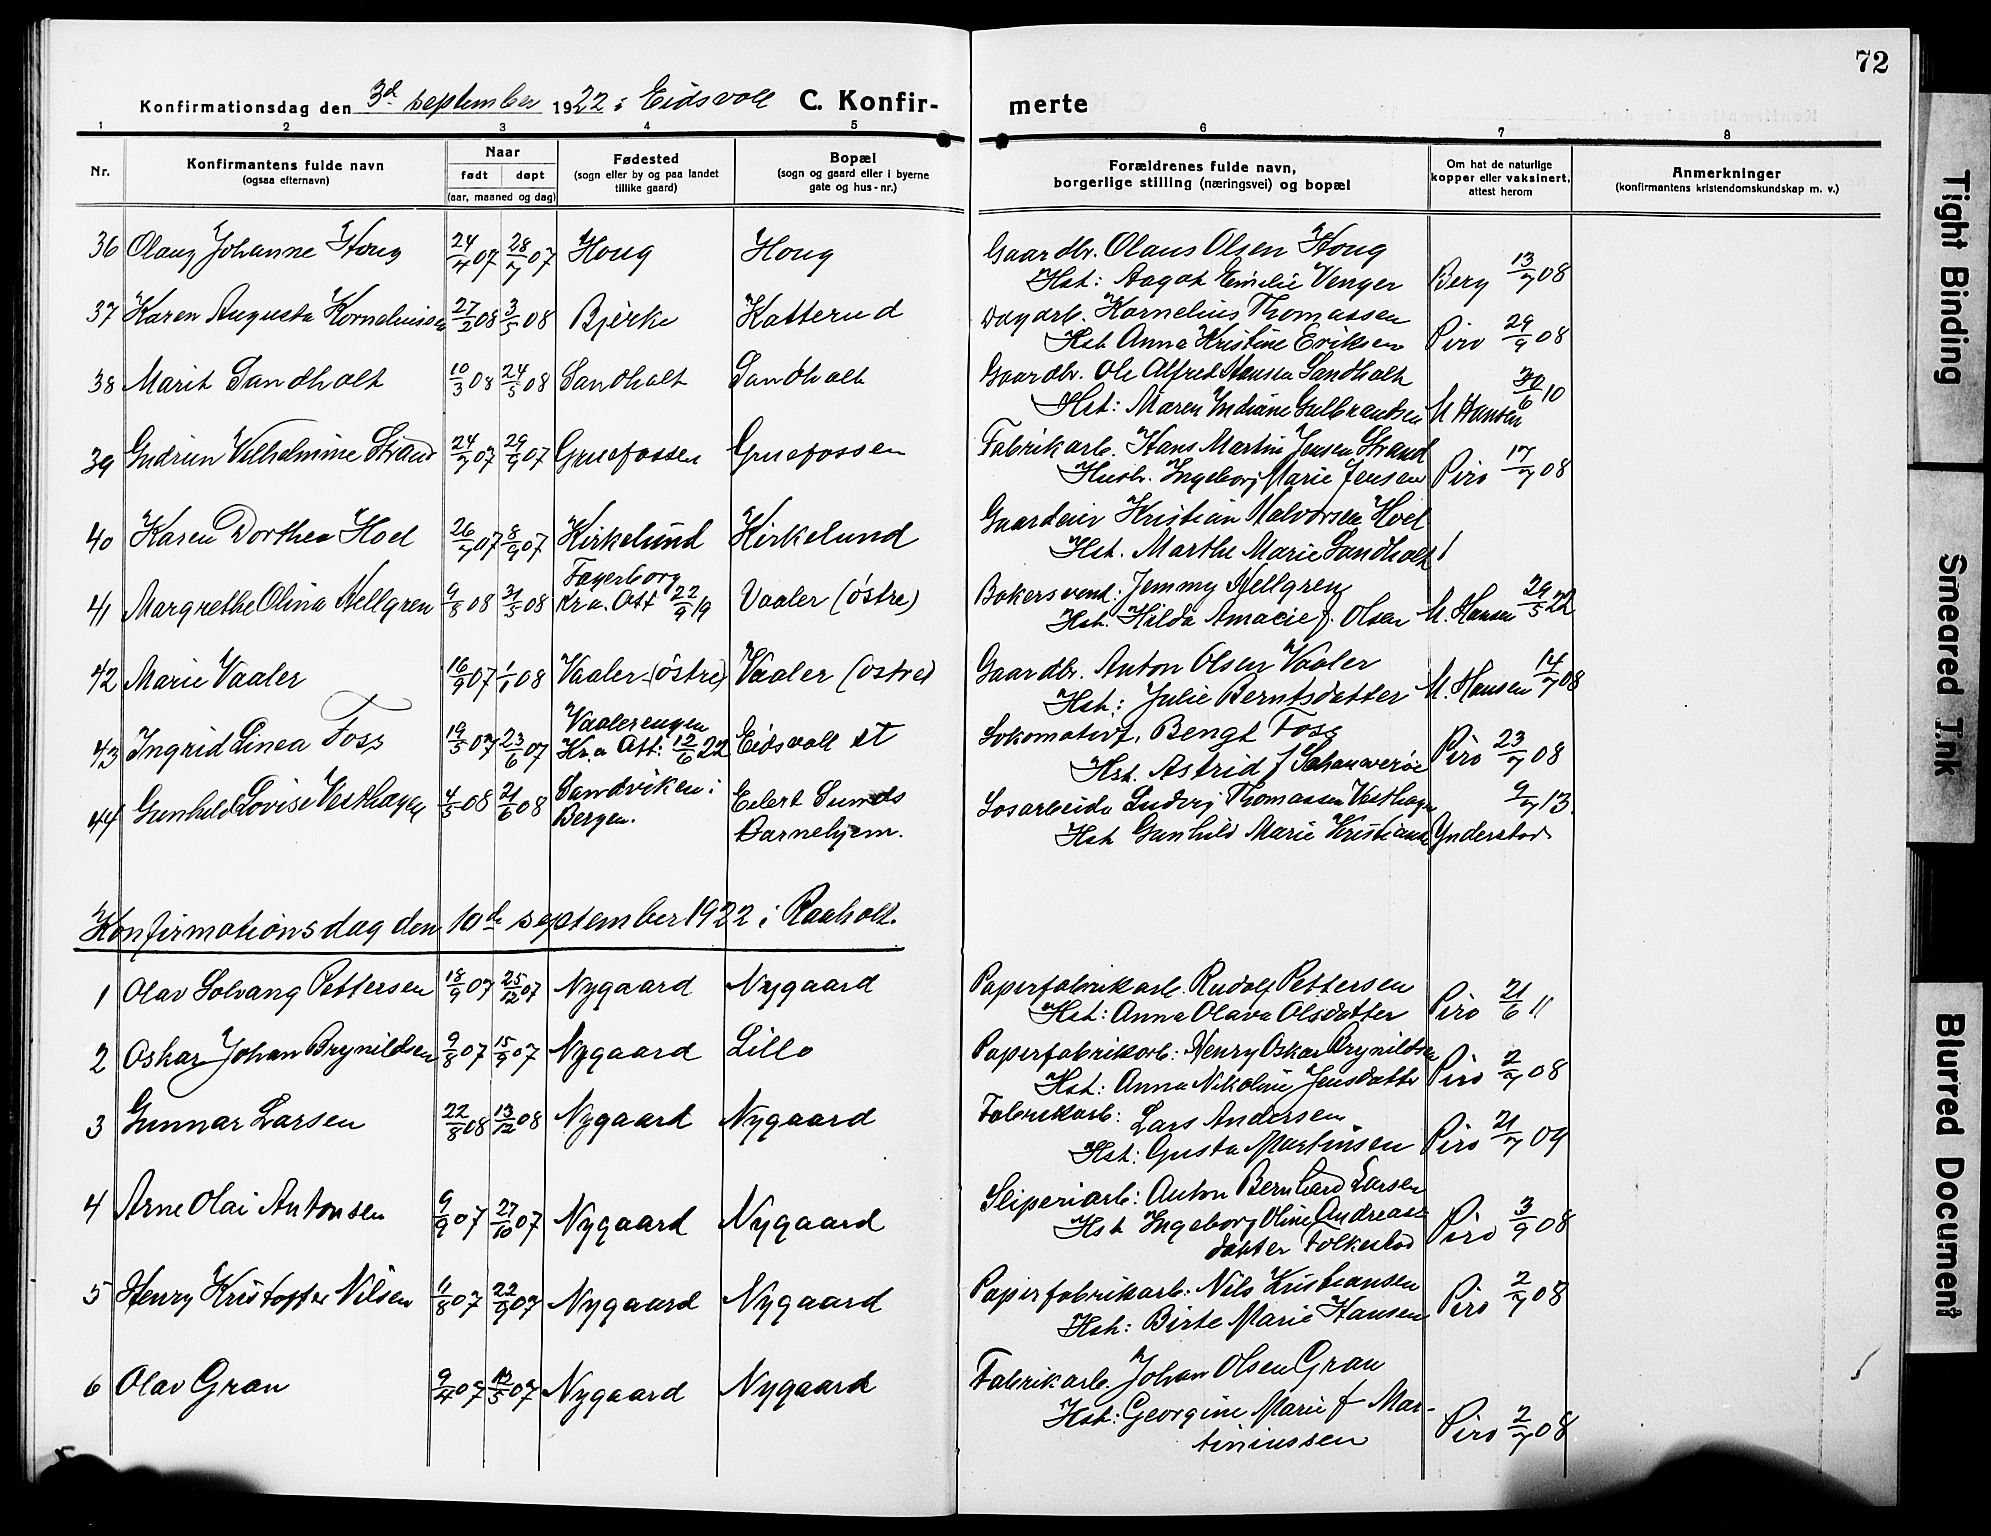 72
Konfirmationsdag den 3d september 1922 i Eidsvoll C. Konfir-
merte
1 2 3 4 5 6 7 8
Nr.
Konfirmantens fulde navn
(ogsaa efternavn)
Naar
født døpt
(aar, maaned og dag)
Fødested
(sogn eller by og paa landet
tillike gaard)
Bopæl
(sogn og gaard eller i byerne
gate og hus-nr.)
Forældrenes fulde navn,
borgerlige stilling (næringsvei) og bopæl
Om hat de naturlige
kopper eller vaksinert,
attest herom
Anmerkninger
(konfirmantens kristendomskundskap m. v.)
36 Olaug Johanne Houg 24/4 07 28/7 07 Houg Houg Gaardbr. Olaus Olsen Houg
Hst: Aagot Emilie Venger Berg 13/7 08
37 Karen Augusta Kornelinssen 27/2 08 3/5 08 Bjerke Katterud Dagarb. Kornelius Thomassen
Hst Anna Kristine Eriksen Piro 29/9 08
38 Marit Sandholt 10/3 08 24/5 08 Sandholt Sandholt Gaardbr. Ole Alfred Hansen Sandholt
Hst: Maren Indiane Gulbrandsen M Hansen 30/6 10
39 Gudrun Vilhelmine Strand 24/7 07 29/9 07 Gruefossen Gruefossen Fabrikarb. Hans Martin Jensen Strand
Hustr. Ingeborg Marie Jensen Piro 17/7 08
40 Karen Dorthea Hoel 26/7 07 8/9 07 Kirkelund Kirkelund Gaardeier Kristian Halvorsen Hoel
Hst. Marthe Marie Sandholt /
41 Margrethe Olina Hellgren 9/8 08 31/5 08 Fagerborg
Kra. Att 22/9 19 Vaaler (østre) Bakersvend: Jemmy Hellgren
Hst. Hilda Amacie f. Olsen M. Hansen 29/5 22
42 Marie Vaaler 16/9 07 1/1 08 Vaaler (østre) Vaaler (østre) Gaardbr. Anton Olsen Vaaler
Hst: Julie Berntsdatter M. Hansen 14/7 08
43 Ingrid Linea Foss 19/5 07 23/6 07 Vaalerengen
Kr.a Att: 12/6 22 Eidsvoll st Lokomotivf. Bengt Foss
Hst. Astrid f Piro 23/7 08
44 Gunhild Lovise Vesthagen 4/5 08 21/6 08 Sandviken i
Bergen. Eilert Sunds
Barnehjem. Losarbeide Ludvig Thomassen Vesthagen
Hst Gunhild Marie Kristians Ynderstad 9/7 13.
Konfirmationsdag den 10de september 1922 i Raaholt.
1 Olav Solvang Pettersen 18/9 07 25/12 07 Nygaard Nygaard Papirfabrikarb. Rudolf Pettersen
Hst: Anna Olava Olsdatter Piro 21/6 11
2 Oskar Johan Brynildsen 9/8 07 15/9 07 Nygaard Lillo Papirfabrikarb: Henry Oskar Brynildsen
Hst: Anna Nikoline Jensdatter Piro 2/7 08
3 Gunnar Larsen 22/8 08 13/12 08 Nygaard Nygaard Fabrikarb: Lars Andersen
Hst: Gusta Martinsen Piro 21/7 09
4 Arne Olai Antonsen 9/9 07 27/10 07 Nygaard Nygaard Sliperiarb: Anton Bernhard Larsen
Hst Ingeborg Oline Andreas
datter Folkestad Piro 3/9 08
5 Henry Kristoffer Nilsen 11/8 07 22/9 07 Nygaard Nygaard Papirfabrikarb: Nils Kristiansen
Hst: Birte Marie Hansen Piro 2/7 08
6 Olav Gran 9/4 07 /5 07 Nygaard Nygaard Fabrikarb. Johan Olsen Gran
Hst: Georgine Marie f Mar-
tiniussen Piro 2/7 08
Tight Binding
Smeared Ink
Blurred Document